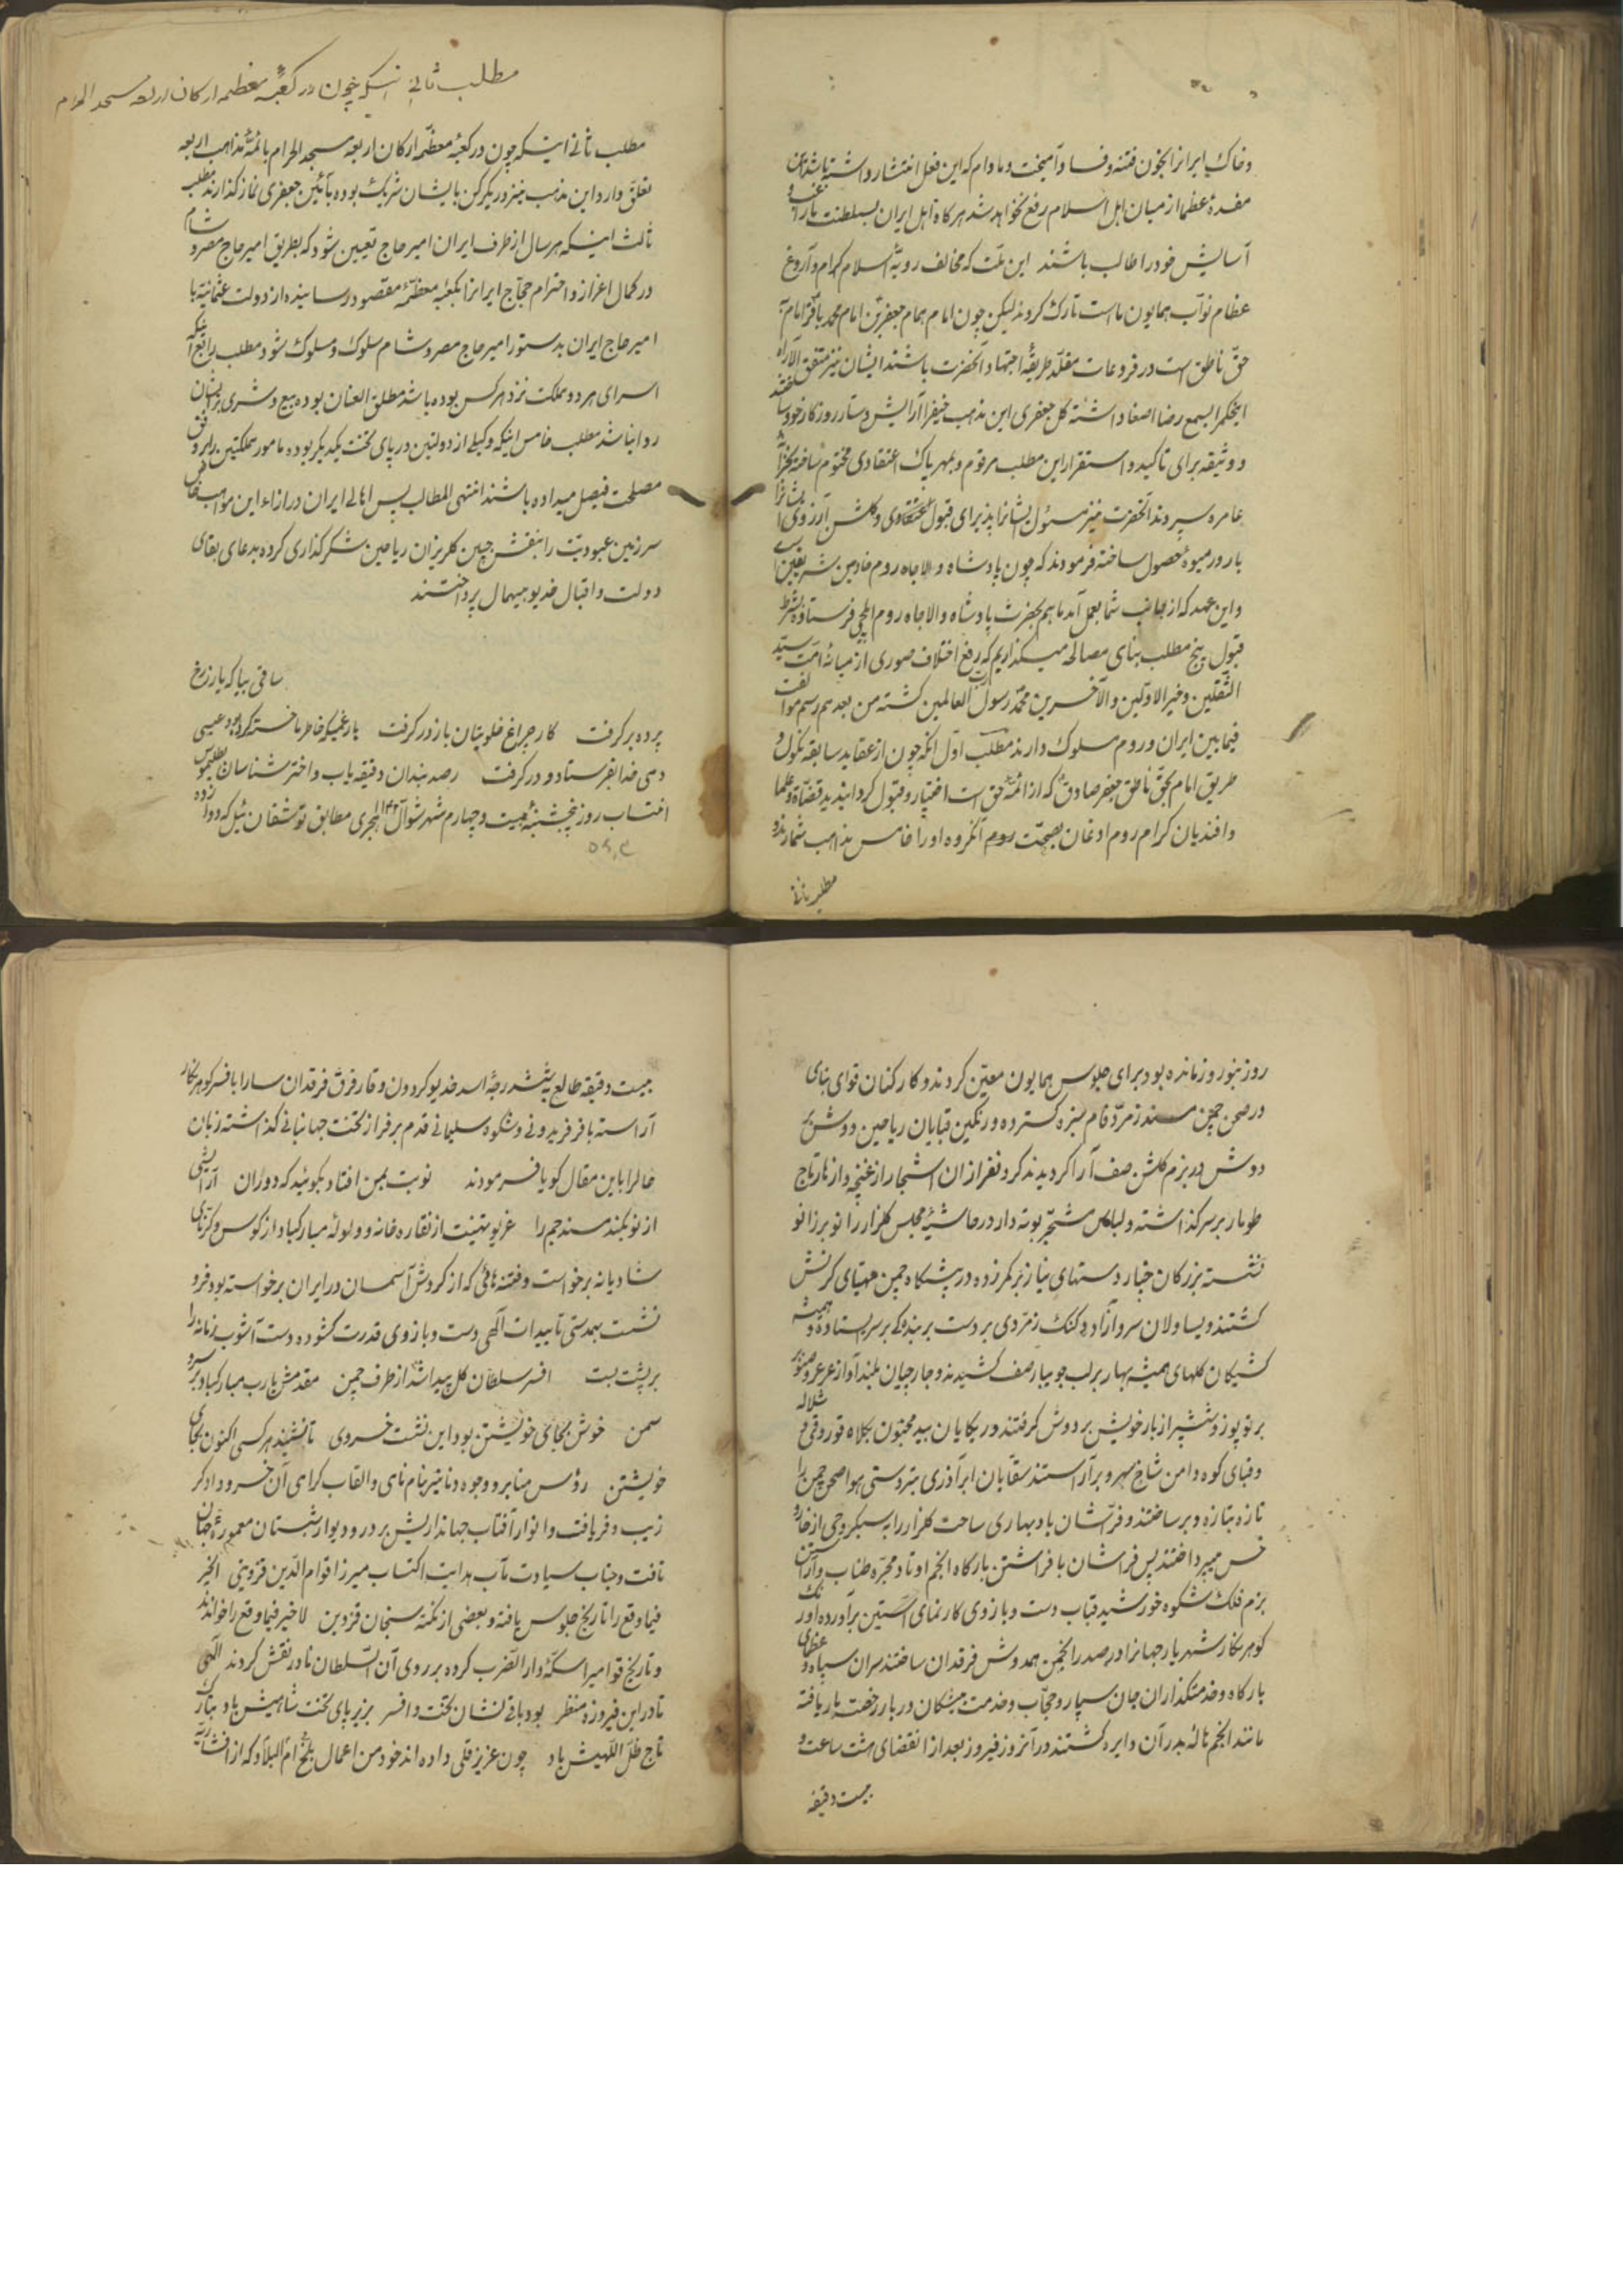 و خاک ایرانرا بخون فتنه و فساد آمیخت و مادام که این فعل انتشار داشته باشد این
مفسدهٔ عظما از میان اهل اسلام رفع نخواهد شد هرگاه اهل ایران بسلطنت ما راغب و
آسایش خود را طالب باشند این ملت که مخالف رویهٔ اسلاف کرام و آروغ
عظام نواب همایون ماست تارک کردند لیکن چون امام همام جعفر بن امام محمد باقر امام به
حق ناطق است در فروعات مقلد طریقهٔ اجتهاد آنحضرت باشند ایشان نیز متفق الآراء
اینحکم را بسمع رضا اصغا داشته گل جعفری این مذهب حنیف را آرایش دستار روزگار خود ساختند
و وثیقه برای تأکید و استقرار این مطلب مرقوم و بمهر پاک اعتقادی مختوم ساخته بخزانه
عامره سپردند آنحضرت نیز مسئول ایشانرا پذیرای قبول و گلشن آرزوی ایشانرا
بارور میوهٔ حصول ساخته فرمودند که چون پادشاه والاجاه روم خادمین شریفین است
و این عهد که از جانب شما بعمل آمد ما هم بحضرت پادشاه والاجاه روم ایلچی فرستاده بشرط
قبول پنج مطلب بنای مصالحه میگذاریم که رفع اختلاف صوری از میانهٔ امت سید
الثقلین و خیر الاولین والآخرین محمد رسول رب العالمین گشته من بعد هم رسم موالفت
فیمابین ایران و روم مسلوک دارند مطلب اول آنکه چون از عقاید سابقه نکول و
طریق امام بحق ناطق جعفر صادق که از ائمهٔ حق است اختیار و قبول گردانیدید قضاة و علما
و افندیان کرام روم اذعان بصحت آن کرده او را خامس مذاهب شمارند و
مطلب ثانی
مطلب ثانی اینکه چون در کعبهٔ معظمه ارکان اربعه مسجد الحرام
مطلب ثانی اینکه چون در کعبهٔ معظمه ارکان اربعه مسجد الحرام بائمهٔ مذاهب اربعه
تعلق دارد این مذهب نیز در یکرکن با ایشان شریک بوده بآئین جعفری نماز گذارند مطلب
ثالث اینکه هر سال از طرف ایران امیر حاج تعیین شود که بطریق امیر حاج مصر و شام
در کمال اعزاز و احترام حجاج ایرانرا بکعبهٔ معظمهٔ مقصود رسانیده از دولت عثمانیه با
امیر حاج ایران بدستور امیر حاج مصر و شام سلوک و مسلوک شود مطلب رابع آنکه
اسرای هر دو مملکت نزد هر کس بوده باشد مطلق العنان بوده بیع و شری بر ایشان
روا نباشد مطلب خامس اینکه وکیلی از دولتین در پای تخت یکدیگر بوده امور مملکتین را بر وفق
مصلحت فیصل میداده باشند انتهی المطالب پس اهالی ایران در ازاء این مواهب خاص
سرزمین عبودیت را بنقش جبین گلریزان ریاحین شکرگذاری کرده بدعای بقای
دولت و اقبال خدیو بیهمال پرداختند
ساقی بیا که یار ز رخ
پرده برگرفت کار چراغ خلوتیان باز در گرفت بار غمی که خاطر ما خسته کرده بود عیسی
دمی خدا بفرستاد و در گرفت رصدبندان دقیقه یاب و اخترشناسان بطلمیوس
انتساب روز پنجشنبه بیست و چهارم شهر شوال ۱۱۴۸ هجری مطابق توشقان ئیل که دوازده
روز بنوروز مانده بود برای جلوس همایون معین کردند و کارکنان قوای نباتی
در صحن چمن مسند زمرد فام سبزه گسترده و رنگین قبایان ریاحین دوش بر
دوش در بزم گلشن صف آرا گردیدند گردنفرازان اشجار از غنچه و ازهار تاج
طومار بر سر گذاشته و لباس مشجر بوته دار در حاشیهٔ مجلس گلزار زانو بر زانو
نشسته بزرگان خیار دستهای نیاز بر کمر زده در پیشگاه چمن مهیای کرنش
گشتند و یساولان سرو آزاد دگنک زمردی بر دست بر بندگی بر سر پا ستاده و همیشه
کشیکان گلهای همیشه بهار بر لب جویبار صف کشیدند و جارچیان بلندآواز عرعر و صنوبر
بر توپوز و ششپر از بار خویش بر دوش گرفتند و ریکایان بید مجنون بکلاه قوروقی شلاله
و قبای کوه دامن شاخ بهره ور آراستند سقایان ابر آذری بتردستی هوا صحن چمن را
تازه بتازه و بر ساختند و فراشان باد بهاری ساحت گلزار را به سبکروحی از خار و
خس میپرداختند پس فراشان بافراشتن بارگاه انجم اوتاد مجره طناب و آراستن
بزم فلک شکوه خورشید قباب دست و بازوی کارنمای از آستین برآورده اورنگ
گوهرنگار شهریار جهانرا در صدر انجمن همدوش فرقدان ساختند سران سپاه و عظمای
بارگاه و خدمتگذاران جان سپار و حجاب و خدمت پیشگان دربار رخصت بار یافته
مانند انجم هالهٔ بدر آن دایره گشتند در آنروز فیروز بعد از انقضای هشت ساعت و
بیست دقیقه
بیست دقیقه طالع بشش درجهٔ اسد خدیو گردون وقار فرق فرقدان سا را بافسر گوهرنگار
آراسته با فر فریدونی و شکوه سلیمانی قدم بر فراز تخت جهانبانی گذاشته زبان
حالرا باین مقال گویا فرمودند نوبت بمن افتاد بگوئید که دوران آرایشی
از نو بکند مسند جم را غریو تهنیت از نقاره خانه و ولولهٔ مبارکباد از کوس و کرنای
شادیانه برخواست و فتنه هائی که از گردش آسمان در ایران برخواسته بود فرو
نشست بهمدستی تاییدات الهی دست و بازوی قدرت گشوده دست آشوب زمانه را
بر پشت بست افسر سلطان گل پیدا شد از طرف چمن مقدمش یارب مبارکباد بر سرو و
سمن خوش بجای خویشتن بود این نشست خسروی تا نشیند هر کسی اکنون بجای
خویشتن رؤس منابر و وجوه دنانیر بنام نامی و القاب گرامی آن خسرو دادگر
زیب و فر یافت و انوار آفتاب جهانداریش بر در و دیوار شبستان معمورهٔ جهان
تافت و جناب سیادت مآب هدایت اکتساب میرزا قوام الدین قزوینی الخیر
فیما وقع را تاریخ جلوس یافته و بعضی از نکته سنجان قزوین لا خیر فیما وقع را خواندند
و تاریخ قوامی را سکهٔ دار الضرب کرده بر روی آن السلطان نادر نقش کردند الهی
تا در این فیروزه منظر بود باقی نشان تخت و افسر بزیر پای تخت شاهیش باد بتارک
تاج ظل اللهیش باد چون عزیز قلی داده اندخود من اعمال بلخ ام البلاد که از افشاریه